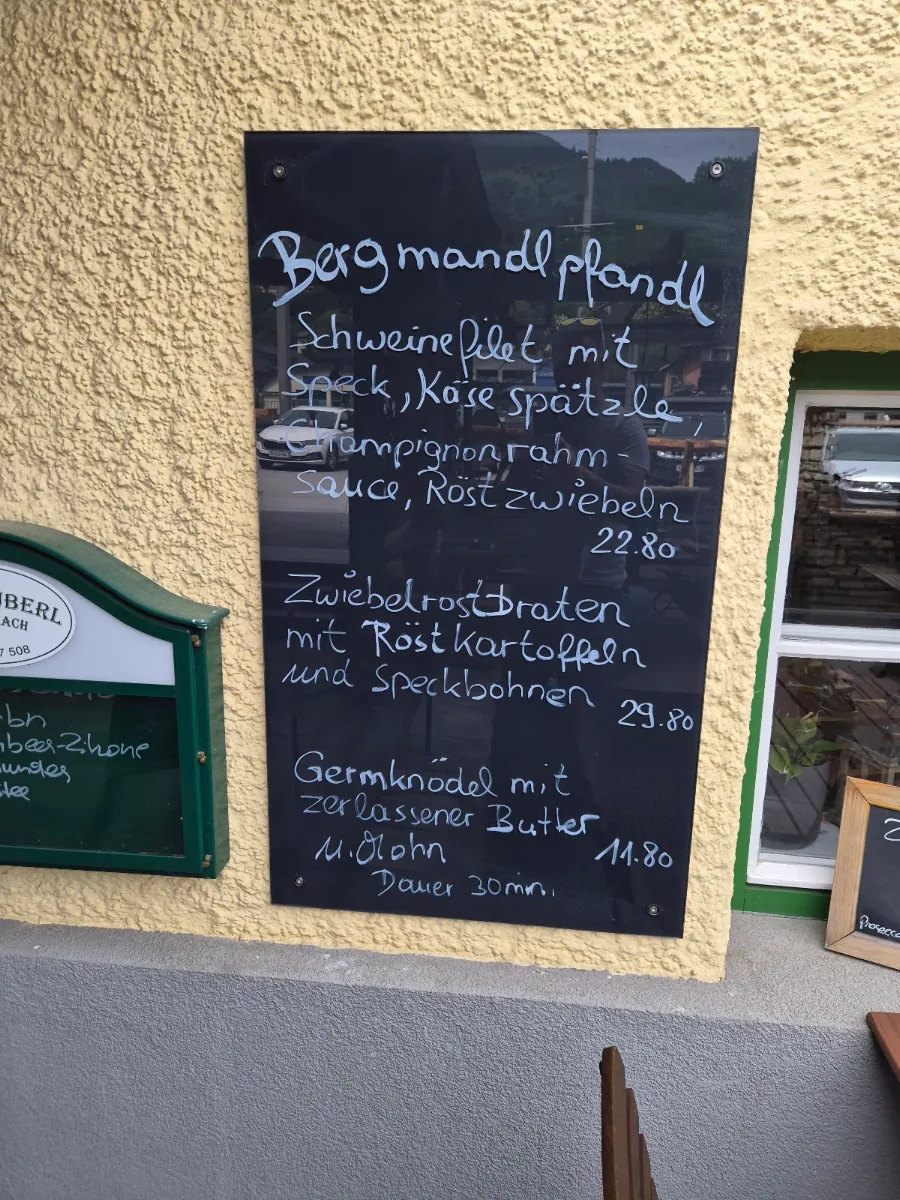 Bergmandlpfandl
Schweinefilet mit
Speck, Käsespätzle,
Champignonrahm-
sauce, Röstzwiebeln
22.80
Zwiebelrostbraten
mit Röstkartoffeln
und Speckbohnen
29.80
Germknödel mit
zerlassener Butter
u. Mohn 11.80
Dauer 30min.
UBERL
ACH
7 508
Prosecco